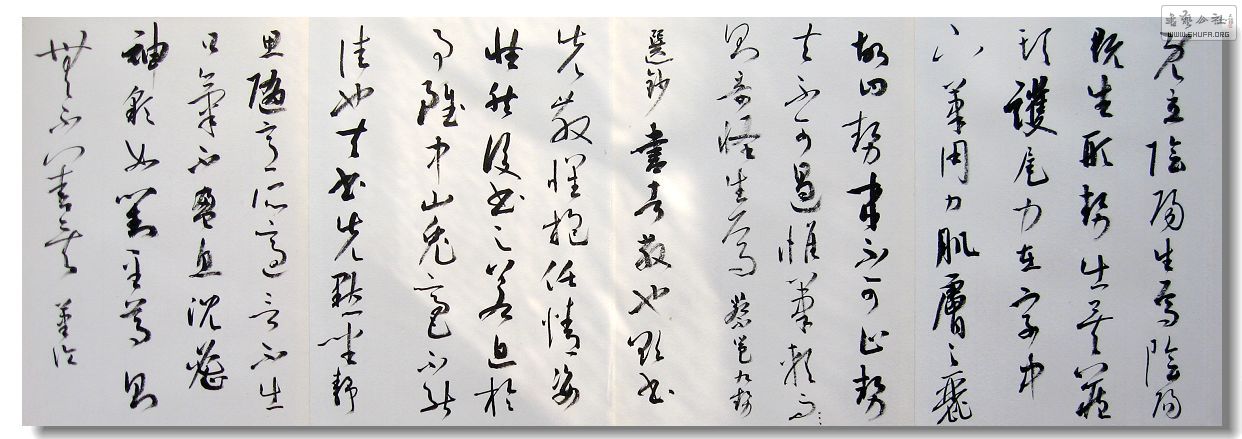 既立陰陽生焉陰陽
既生形勢出矣藏
頭護尾力在字中
下筆用力肌膚之麗
故曰勢來不可止勢
去不可遏惟筆軟而
則奇怪生焉 蔡邕九勢
選鈔 書者散也欲書
先散懷抱任情恣
性然後書之若迫於
事雖中山兔毫不能
佳也夫書先默坐靜
思隨意所適言不出
口氣不盈息沉密
神彩如對至尊則
無不善矣 筆論
書藝公社
WWW.SHUFA.ORG